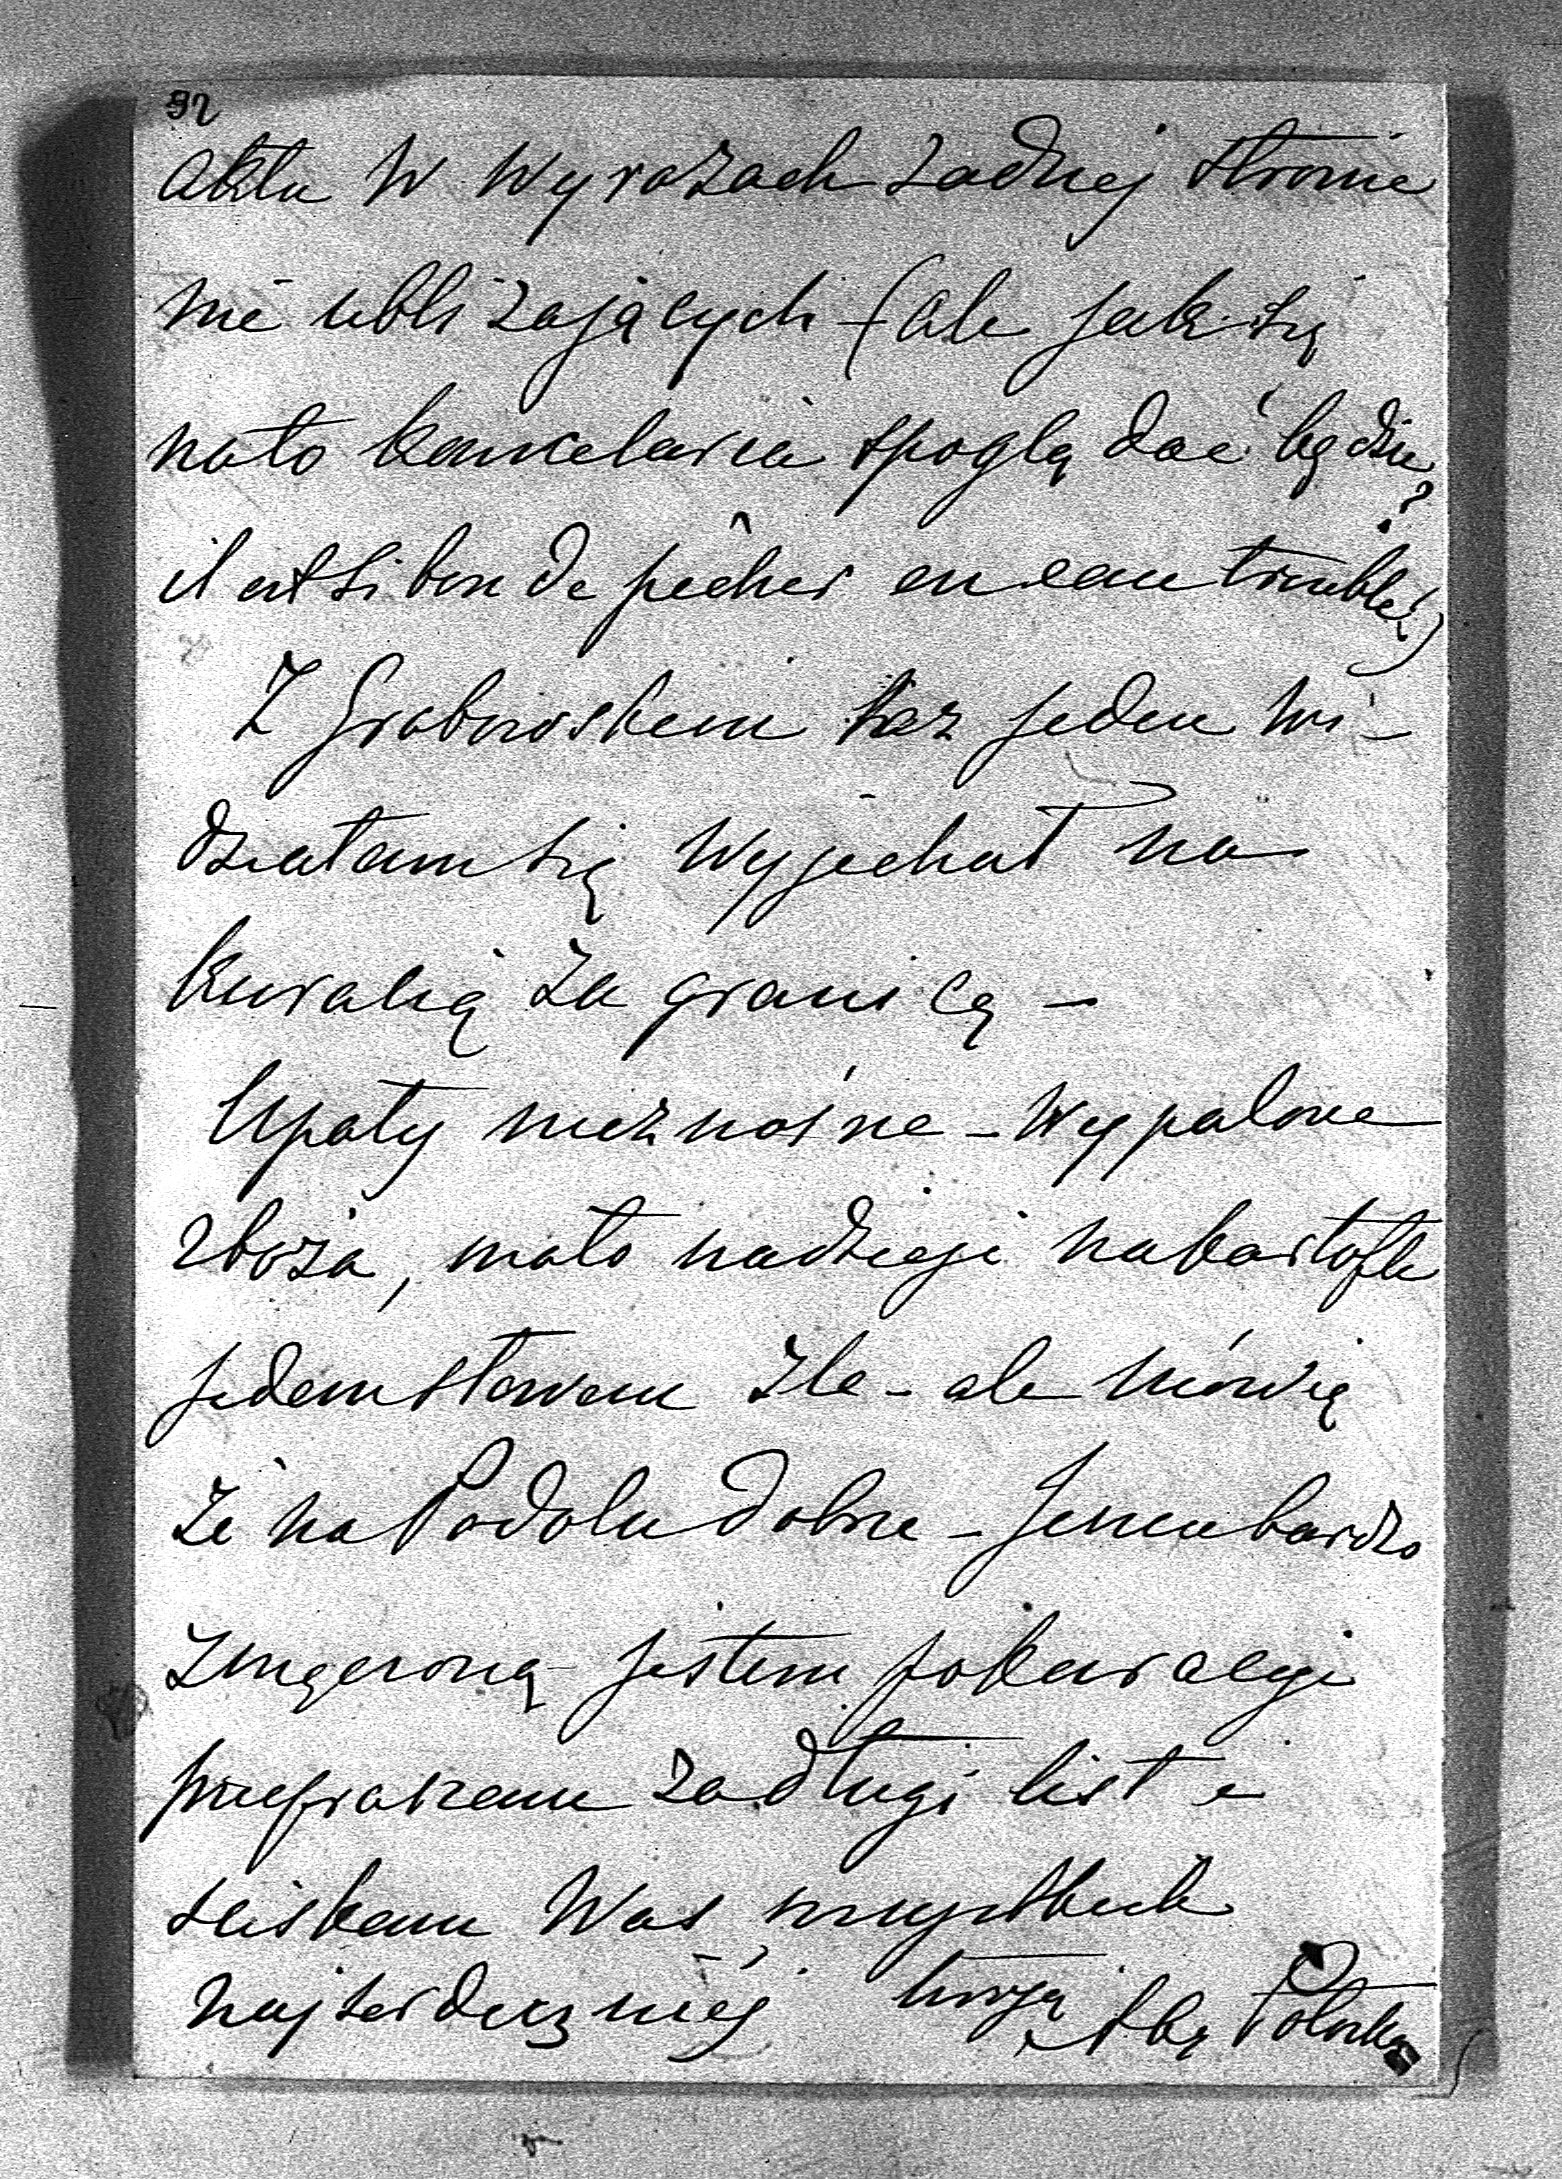 92
aktu w wyrazach żadnej stronie
nie ubliżających – (ale jak się
na to kancelaria spoglądać będzie?
il est si bon de pêcher en eau trouble!)
Z Grabowskem raz jeden wi–
działam się wyjechał na
kuracię za granicę –
Upały nieznośne – wypalone
zboża, mało nadzieji na kartofle
jedem słowem źle – ale mówią
że na Podolu dobrze – Jestem bardzo
zmęczoną jestem po kuracyi
przepraszam za długi list i
ściskam Was wszystkich
najserdeczniej twoją Potocka